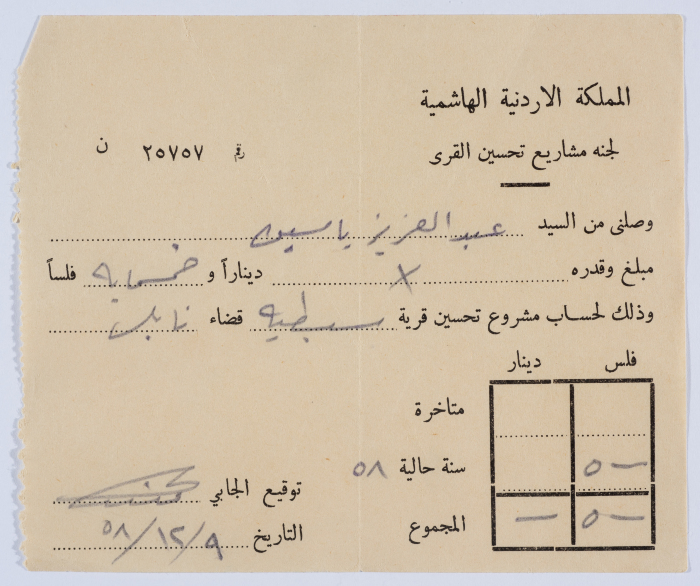 المملكة الاردنية الهاشمية
لجنه مشاريع تحسين القرى
رقم ٢٥٧٥٧ ن
وصلني من السيد عبد العزيز ياسين
مبلغ وقدره X ديناراً و خمسماية فلساً
وذلك لحساب مشروع تحسين قرية سبسطيه قضاء نابلس
فلس دينار
متاخرة
سنة حالية ٥٨ ٥٠٠
المجموع ٥٠٠ —
توقيع الجابي
التاريخ ٩/١٢/٥٨